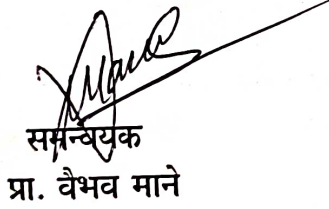 समन्वयक
प्रा. वैभव माने